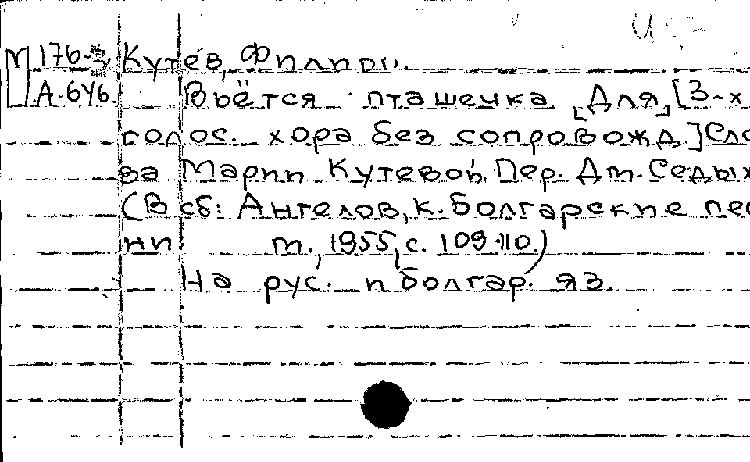 М 176-3 Кутев, Филипп.
А.646. Вьётся пташечка [Для] [3-х
голос. хора без сопровожд.] Сло
ва Марии Кутевой, Пер. Дм. Седых
(В сб: Ангелов, К. Болгарские пес
ни М., 1955, с. 109-110.)
На рус. и болгар. яз.